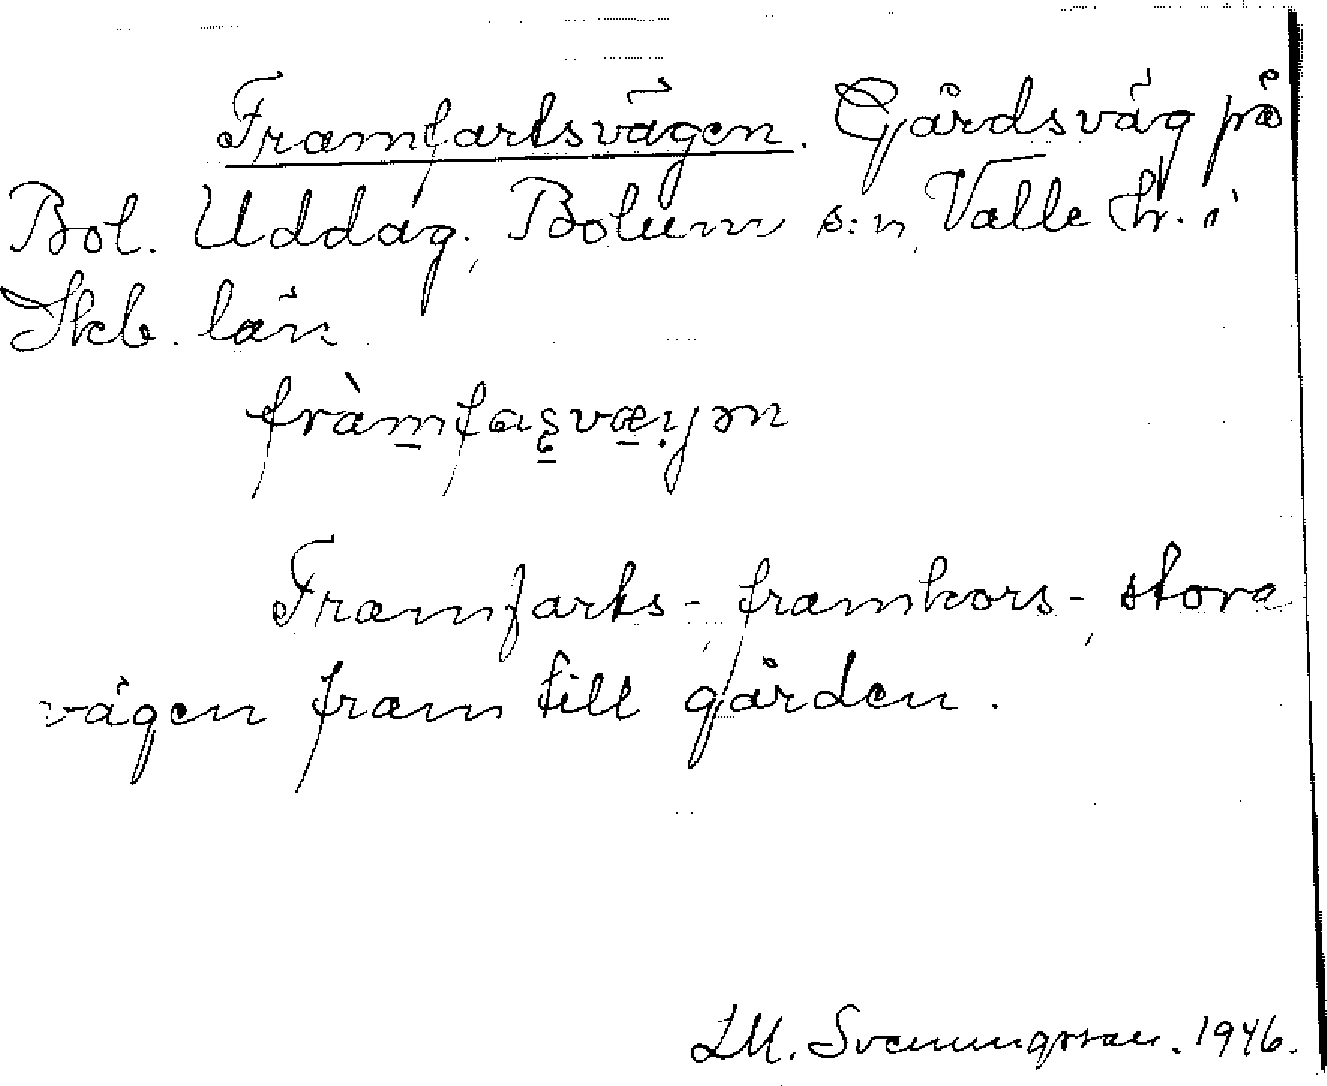 Framfartsvägen. Gårdsväg på
Bol. Uddag. Bolum s:n, Valle hr. i
Skb. län.
fràmfaşvæɲən
Framfarts-, framkors-, stora
vägen fram till gården.
LM. Svenungsson. 1946.